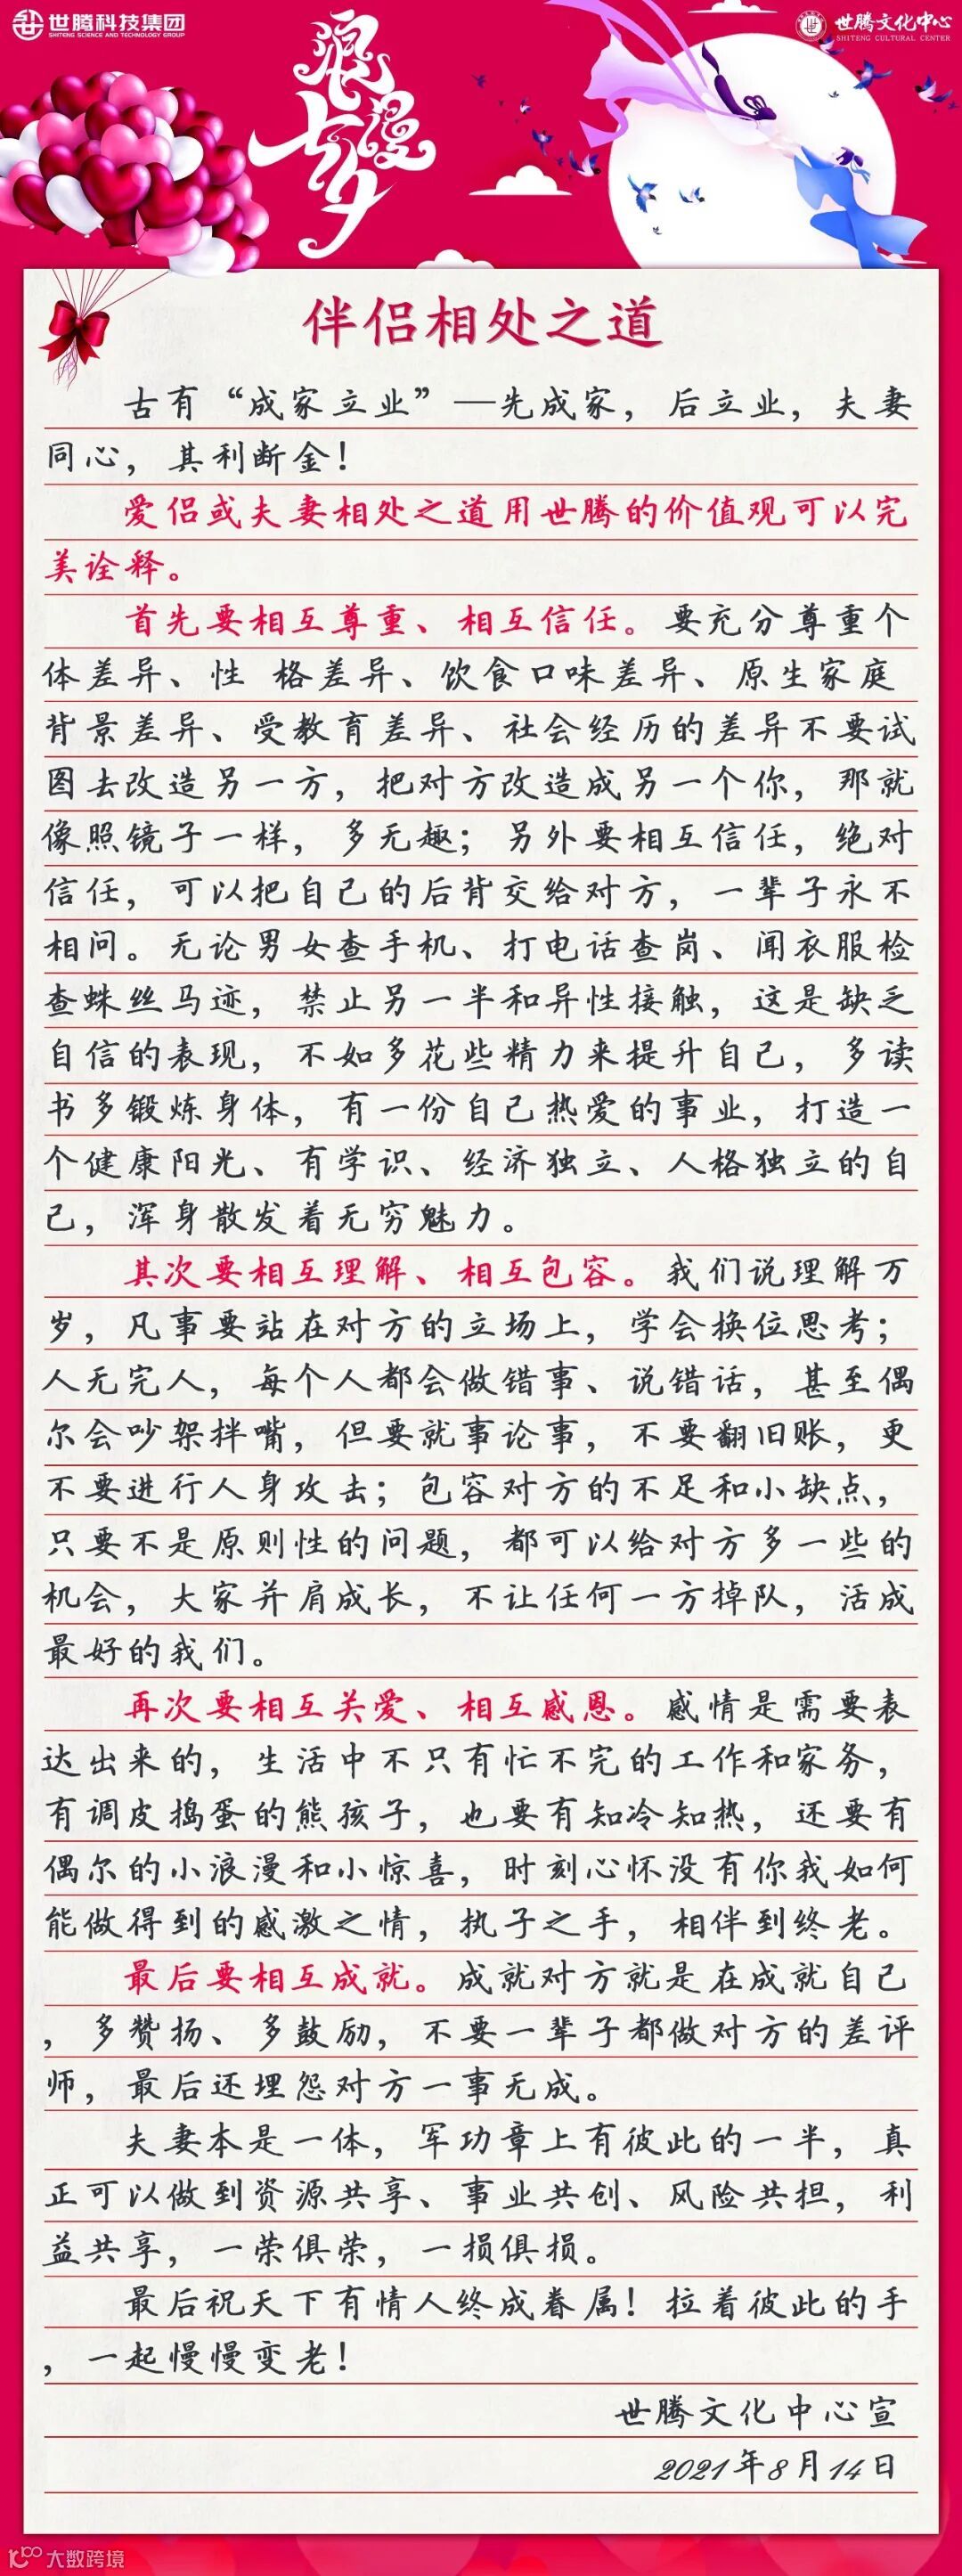 世腾科技集团
SHITENG SCIENCE AND TECHNOLOGY GROUP
世腾文化中心
SHITENG CULTURAL CENTER
浪漫七夕
伴侣相处之道
古有“成家立业”—先成家，后立业，夫妻
同心，其利断金！
爱侣或夫妻相处之道用世腾的价值观可以完
美诠释。
首先要相互尊重、相互信任。要充分尊重个
体差异、性 格差异、饮食口味差异、原生家庭
背景差异、受教育差异、社会经历的差异不要试
图去改造另一方，把对方改造成另一个你，那就
像照镜子一样，多无趣；另外要相互信任，绝对
信任，可以把自己的后背交给对方，一辈子永不
相问。无论男女查手机、打电话查岗、闻衣服检
查蛛丝马迹，禁止另一半和异性接触，这是缺乏
自信的表现，不如多花些精力来提升自己，多读
书多锻炼身体，有一份自己热爱的事业，打造一
个健康阳光、有学识、经济独立、人格独立的自
己，浑身散发着无穷魅力。
其次要相互理解、相互包容。我们说理解万
岁，凡事要站在对方的立场上，学会换位思考；
人无完人，每个人都会做错事、说错话，甚至偶
尔会吵架拌嘴，但要就事论事，不要翻旧账，更
不要进行人身攻击；包容对方的不足和小缺点，
只要不是原则性的问题，都可以给对方多一些的
机会，大家并肩成长，不让任何一方掉队，活成
最好的我们。
再次要相互关爱、相互感恩。感情是需要表
达出来的，生活中不只有忙不完的工作和家务，
有调皮捣蛋的熊孩子，也要有知冷知热，还要有
偶尔的小浪漫和小惊喜，时刻心怀没有你我如何
能做得到的感激之情，执子之手，相伴到终老。
最后要相互成就。成就对方就是在成就自己
，多赞扬、多鼓励，不要一辈子都做对方的差评
师，最后还埋怨对方一事无成。
夫妻本是一体，军功章上有彼此的一半，真
正可以做到资源共享、事业共创、风险共担，利
益共享，一荣俱荣，一损俱损。
最后祝天下有情人终成眷属！拉着彼此的手
，一起慢慢变老！
世腾文化中心宣
2021年8月14日
大数跨境